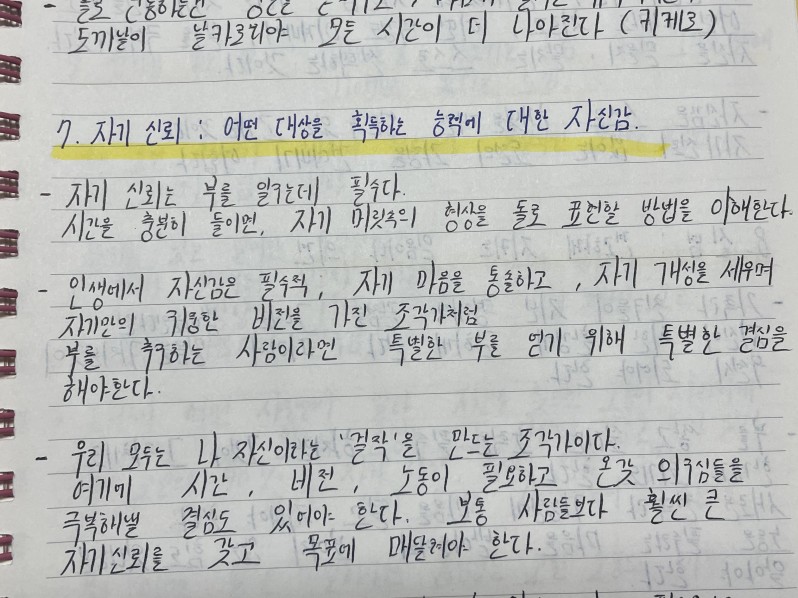 도끼날이 날카로워야 모든 시간이 더 나아진다 (키케로)
7. 자기 신뢰 : 어떤 대상을 획득하는 능력에 대한 자신감.
- 자기 신뢰는 부를 일구는데 필수다.
시간을 충분히 들이면, 자기 머릿속의 형상을 돌로 표현할 방법을 이해한다.
- 인생에서 자신감은 필수적, 자기 마음을 통솔하고, 자기 개성을 세우며
자기만의 귀중한 비전을 가진 조각가처럼
부를 추구하는 사람이라면 특별한 부를 얻기 위해 특별한 결심을
해야한다.
- 우리 모두는 나 자신이라는 '걸작'을 만드는 조각가이다.
여기에 시간, 비전, 노동이 필요하고 온갖 의구심들을
극복해낼 결심도 있어야 한다. 보통 사람들보다 훨씬 큰
자기신뢰를 갖고 목표에 매달려야 한다.